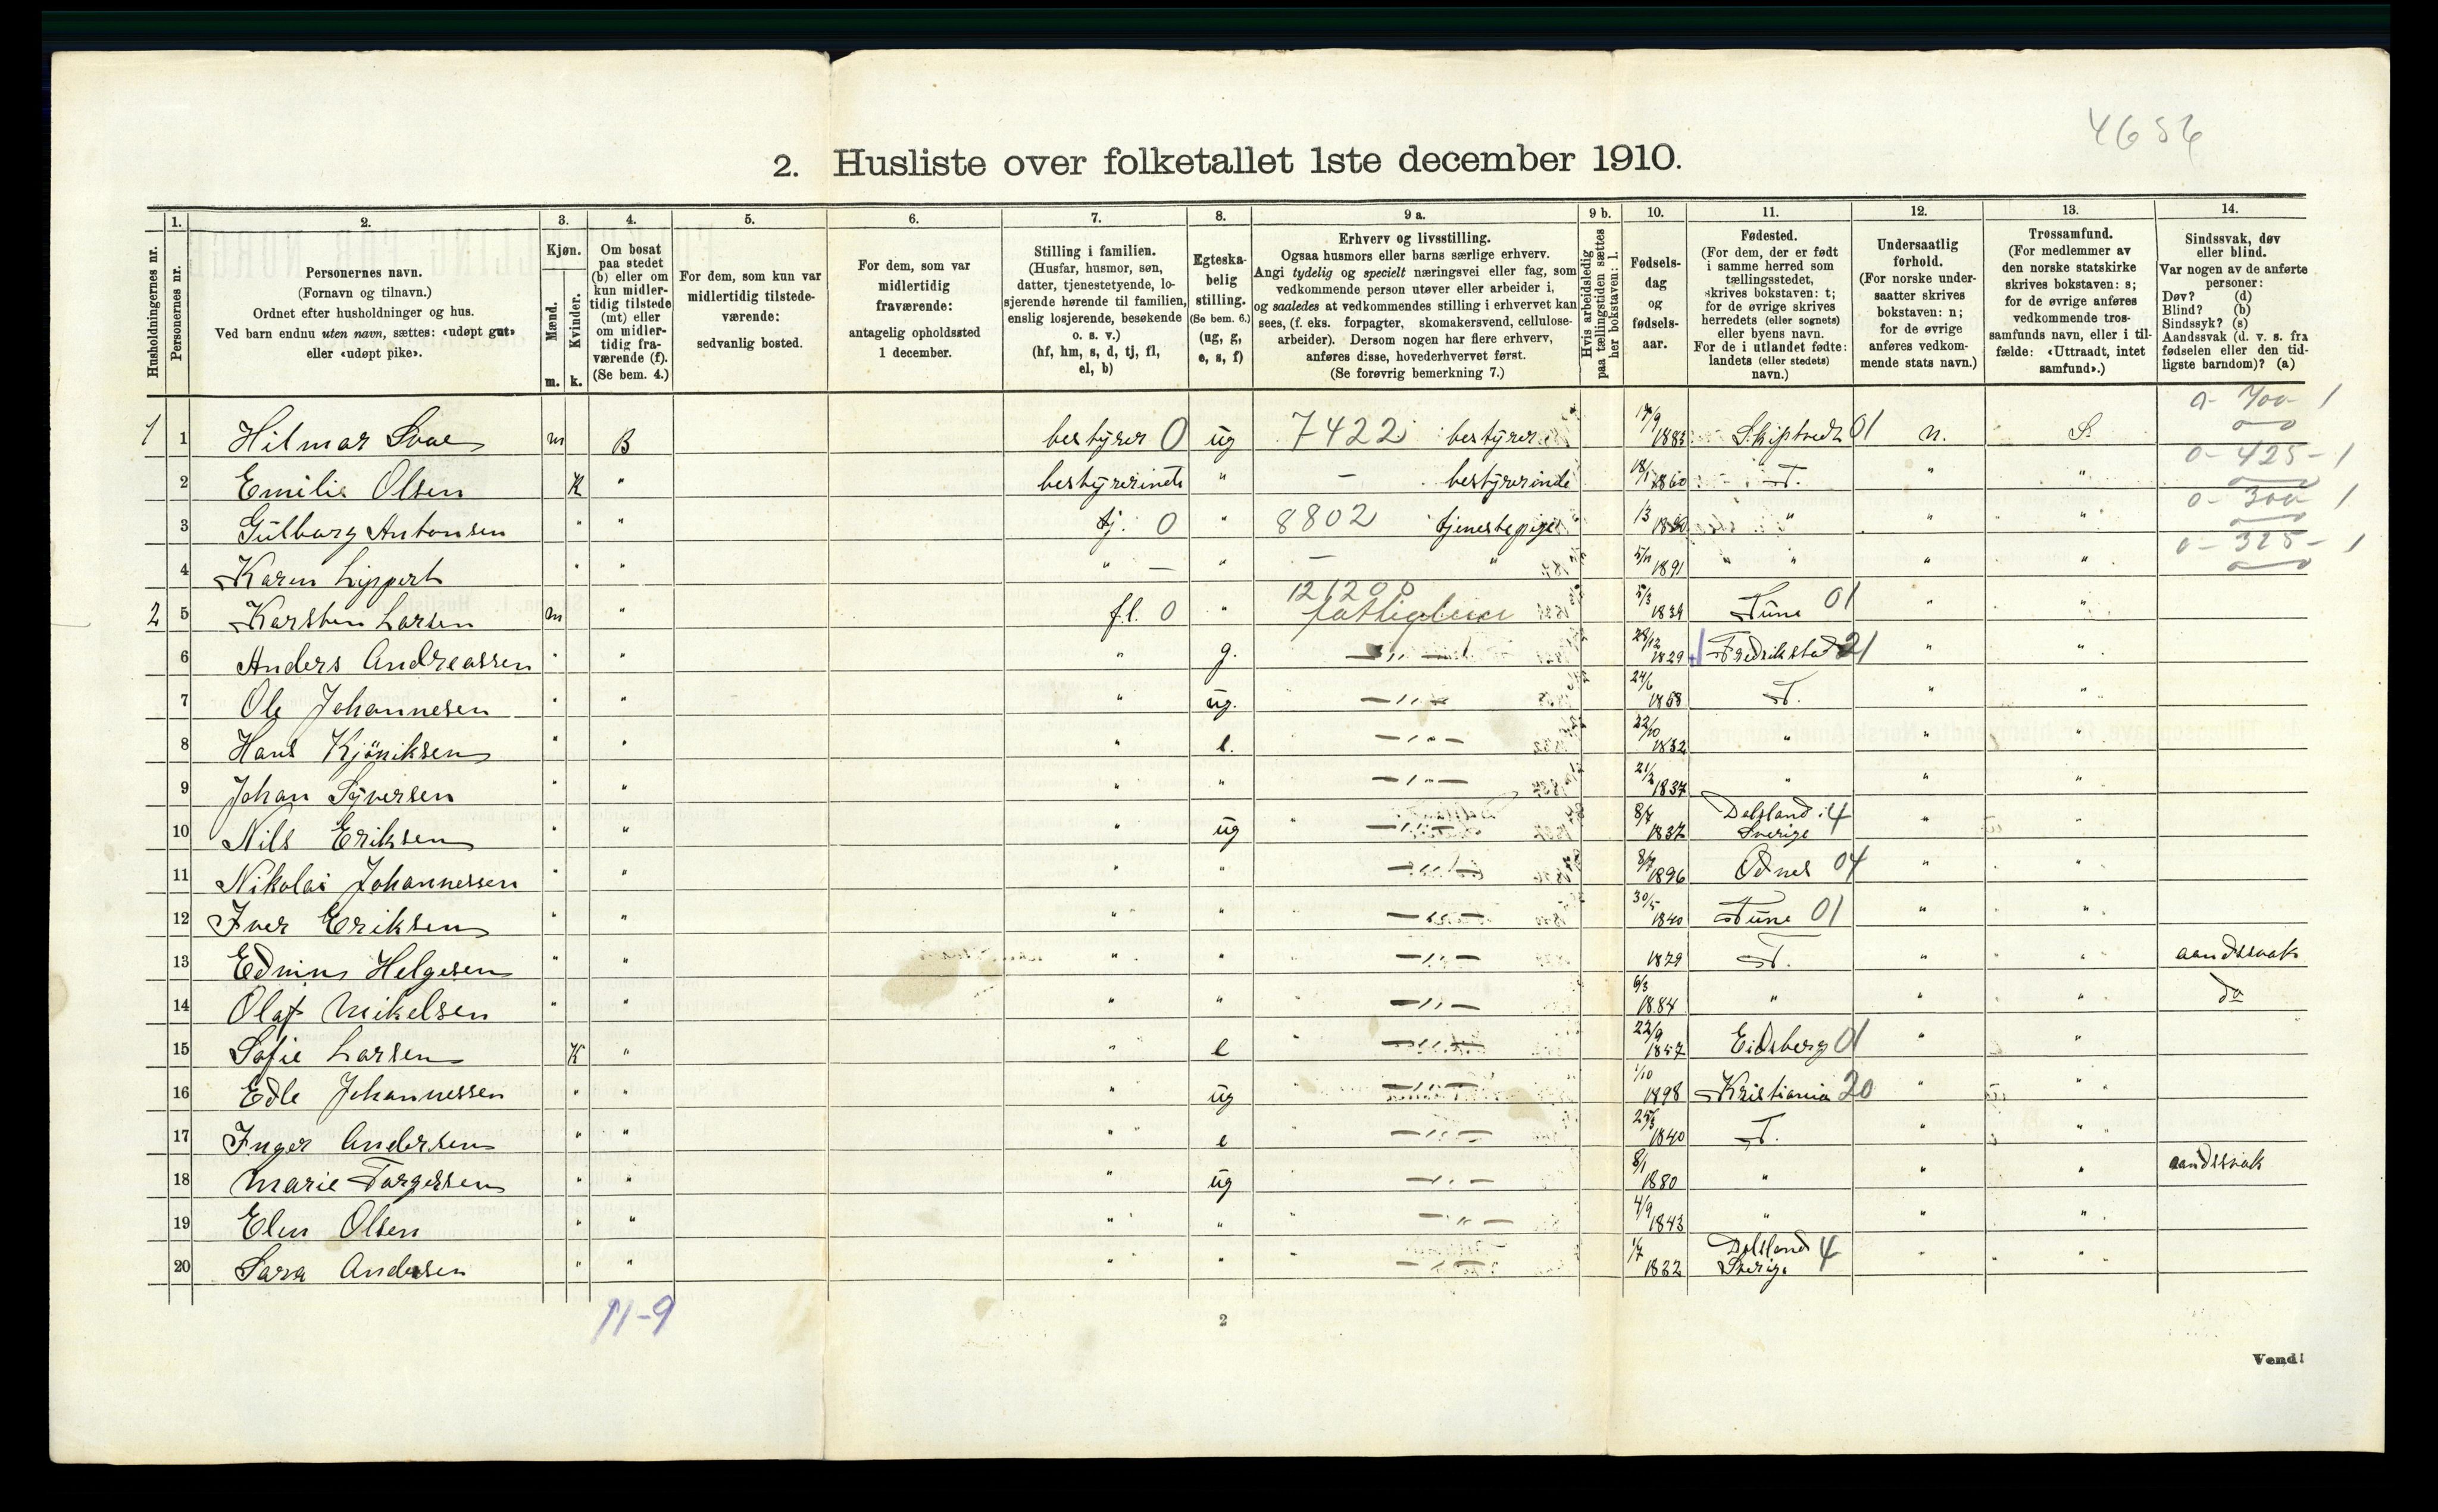 4656
2. Husliste over folketallet 1ste december 1910.
1. 2. 3. 4. 5. 6. 7. 8. 9 a. 9 b. 10. 11. 12. 13. 14.
Husholdningernes nr.
Personernes nr.
Personernes navn.
(Fornavn og tilnavn.)
Ordnet efter husholdninger og hus.
Ved barn endnu uten navn, sættes: «udøpt gut»
eller «udøpt pike».
Kjøn.
Mænd.
Kvinder.
m. k.
Om bosat
paa stedet
(b) eller om
kun midler-
tidig tilstede
(mt) eller
om midler-
tidig fra-
værende (f).
(Se bem. 4.)
For dem, som kun var
midlertidig tilstede-
værende:
sedvanlig bosted.
For dem, som var
midlertidig
fraværende:
antagelig opholdssted
1 december.
Stilling i familien.
(Husfar, husmor, søn,
datter, tjenestetyende, lo-
sjerende hørende til familien,
enslig losjerende, besøkende
o. s. v.)
(hf, hm, s, d, tj, fl,
el, b)
Egteska-
belig
stilling.
(Se bem. 6.)
(ug, g,
e, s, f)
Erhverv og livsstilling.
Ogsaa husmors eller barns særlige erhverv.
Angi tydelig og specielt næringsvei eller fag, som
vedkommende person utøver eller arbeider i,
og saaledes at vedkommendes stilling i erhvervet kan
sees, (f. eks. forpagter, skomakersvend, cellulose-
arbeider). Dersom nogen har flere erhverv,
anføres disse, hovederhvervet først.
(Se forøvrig bemerkning 7.)
Hvis arbeidsledig
paa tællingstiden sættes
her bokstaven: l.
Fødsels-
dag
og
fødsels-
aar.
Fødested.
(For dem, der er født
i samme herred som
tællingsstedet,
skrives bokstaven: t;
for de øvrige skrives
herredets (eller sognets)
eller byens navn.
For de i utlandet fødte:
landets (eller stedets)
navn.)
Undersaatlig
forhold.
(For norske under-
saatter skrives
bokstaven: n;
for de øvrige
anføres vedkom-
mende stats navn.)
Trossamfund.
(For medlemmer av
den norske statskirke
skrives bokstaven: s;
for de øvrige anføres
vedkommende tros-
samfunds navn, eller i til-
fælde: «Uttraadt, intet
samfund».)
Sindssvak, døv
eller blind.
Var nogen av de anførte
personer:
Døv? (d)
Blind? (b)
Sindssyk? (s)
Aandssvak (d. v. s. fra
fødselen eller den tid-
ligste barndom)? (a)
1 1 Hilmar Svae m B bestyrer 0 ug 7422 bestyrer 1883 Skiptvedt 01 n. S. 0-700-1
2 Emilie Olsen K " bestyrerinde " — bestyrerinde 18/1 1860 T. " " 0-425-1
3 Gulborg Antonsen " " tj. 0 " 8802 tjenestepige 13 " " " 0-300-1
4 Karen Lippert " " " — " — " 5/11 1891 " " " " 0-325-1
2 5 Karsten Larsen m " fl. 0 " 121200 fattiglem 5/3 1839 Tune 01 " "
6 Anders Andreassen " " " g. —"— 28/12 1829 Fredrikstad 21 " "
7 Ole Johannesen " " " ug. —"— 24/6 1858 T. " "
8 Hans Kjöniksen " " " e. —"— 22/10 1832 " " "
9 Johan Syversen " " " " —"— 21/2 1837 " " "
10 Nils Eriksen " " " ug —"— 8/7 1837 Dalsland i 4 Sverige " "
11 Nikolai Johannessen " " " " —"— 8/7 1896 Odnes 04 " "
12 Iver Eriksen " " " " —"— 30/5 1840 Tune 01 " "
13 Edvin Helgesen " " " " —"— 1879 T. " " aandssvak
14 Olaf Mikelsen " " " " —"— 6/3 1884 " " " do
15 Sofie Larsen K " " e —"— 22/9 1857 Eidsberg 01 " "
16 Edle Johannessen " " " ug —"— 1/10 1898 Kristiania 20 " "
17 Inger Andersen " " " e —"— 1840 T. " "
18 Marie Torgersen " " " ug —"— 8/1 1880 " " " aandssvak
19 Elen Olsen " " " " —"— 4/9 1843 " " "
20 Sara Andersen " " " " —"— 1/7 1832 Dalsland 4 Sverige " "
11-9
2
Vend!